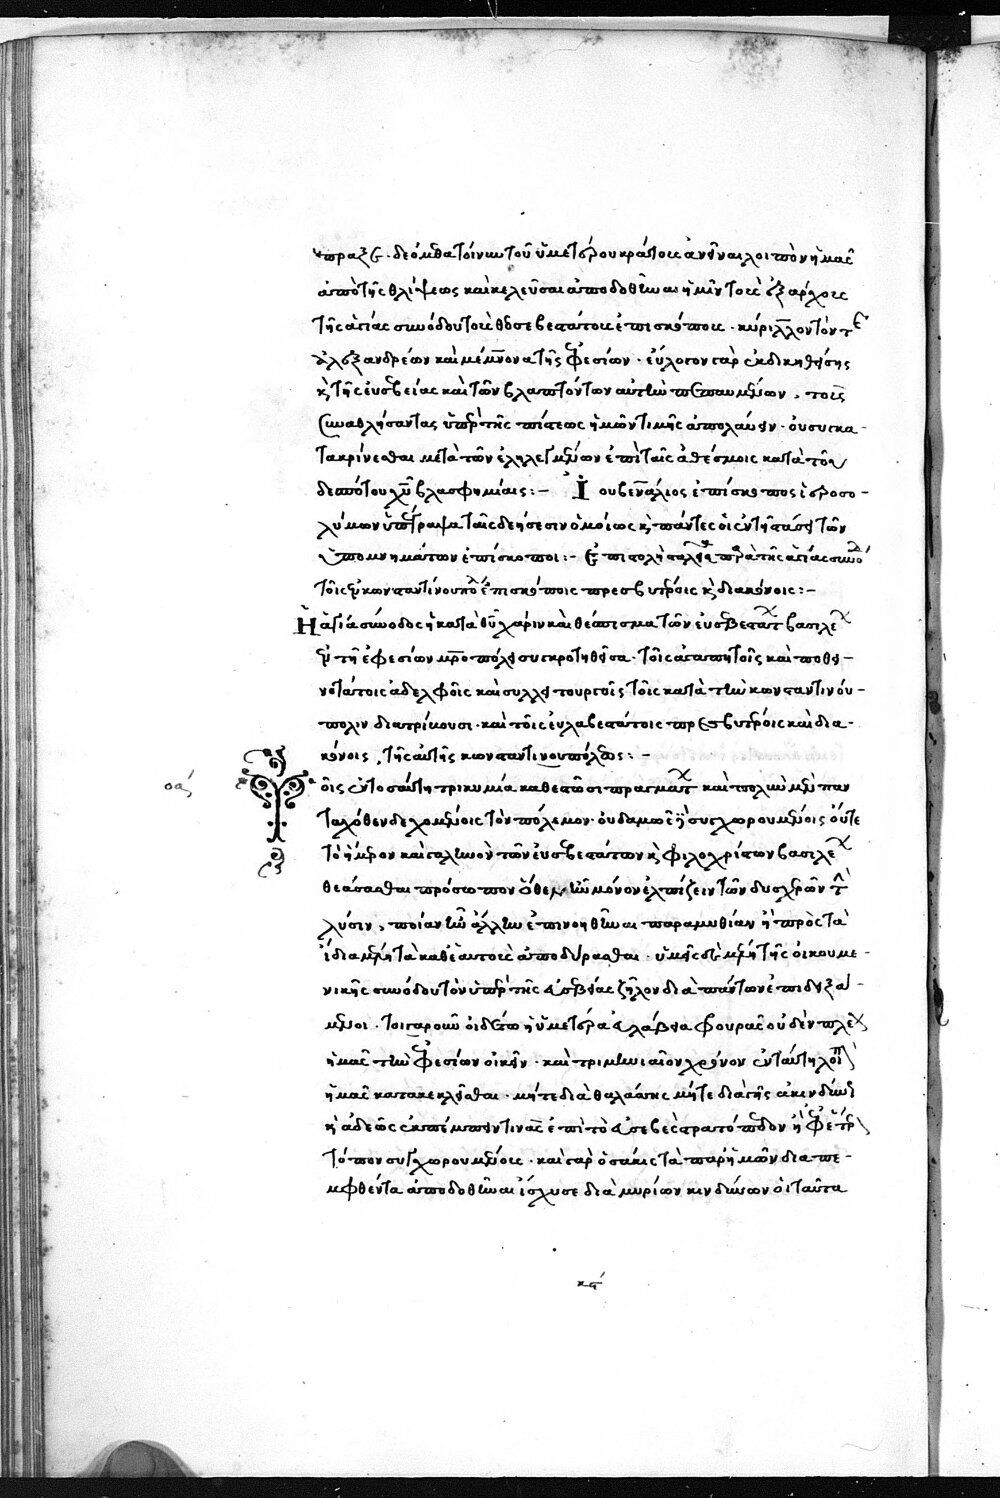 πραξει. δεόμεθα τοίνυν τοῦ ὑμετέρου κράτους ἀνεῖναι λοιπὸν ἡμᾶς
ἀπὸ τῆς θλίψεως καὶ κελεῦσαι ἀποδοθῆναι ἡμῖν τοὺς ἐξάρχους
τῆς ἁγίας συνόδου τοὺς θεοσεβεστάτους ἐπισκόπους. κύριλλον τόν τε
ἀλεξανδρέων καὶ μέμνονα τῆς ἐφεσίων. εὔλογον γὰρ ἐκδικηθείσης
κ τῆς εὐσεβείας καὶ τῶν βλαπτόντων αὐτὴν πεπαυμένων, τοὺς
συναθλήσαντας ὑπὲρ τῆς πίστεως ἡμῶν τιμῆς ἀπολαύειν. οὐ συγκα-
τακρίνεσθαι μετὰ τῶν ἐληλεγμένων ἐπὶ ταῖς ἀθέσμοις κατὰ τοῦ
δεσπότου χυ βλασφημίαις:- Ἰουβενάλιος ἐπίσκοπος ἱεροσο-
λύμων ὑπέγραψα ταῖς δεήσεσιν ὁμοίως κ πάντες οἱ ἐν τῇ τάξει τῶν
ὑπομνημάτων ἐπίσκοποι:- Ἐπιστολὴ σταλεῖσα παρὰ τῆς ἁγίας συνόδ
τοῖς ἐν κωνσταντινουπόλ ἐπισκόποις πρεσβυτέροις κ διακόνοις:-
Ἡ ἁγία σύνοδος ἡ κατὰ θυ χάριν καὶ θεσπίσματα τῶν εὐσεβεστάτ βασιλε
ἐν τῇ ἐφεσίων μητροπόλει συγκροτηθεῖσα. τοῖς ἀγαπητοῖς καὶ ποθει-
νοτάτοις ἀδελφοῖς καὶ συλλειτουργοῖς τοῖς κατὰ τὴν κωνσταντινού-
πολιν διατρίβουσι. καὶ τοῖς εὐλαβεστάτοις πρεσβυτέροις καὶ δια-
κόνοις, τῆς αὐτῆς κωνσταντινουπόλεως:-
οα Τοῖς ἐν τοσαύτῃ τρικυμίᾳ καθεστῶσι πραγμάτ καὶ πολὺν μὲν παν
ταχόθεν δεχομένοις τὸν πόλεμον. οὐδαμῶς δὲ συγχωρουμένοις οὔτε
τὸ ἥμερον καὶ γαληνὸν τῶν εὐσεβεστάτων κ φιλοχρίστων βασιλε
θεάσασθαι πρόσωπον ὅθεν ἦν μόνον ἐλπίζειν τῶν δυσχερῶν τ
λύσιν, ποίαν ἦν ἄλλην ἐπινοηθῆναι παραμυθίαν ἢ πρὸς τὰ
ἴδια μέλη τὰ καθ' ἑαυτοὺς ἀποδύρασθαι. ὑμεῖς δὲ μέλη τῆς οἰκουμε-
νικῆς συνόδου τὸν ὑπὲρ τῆς εὐσεβείας ζῆλον διὰ πάντων ἐπιδειξά-
μενοι. τοιγαροῦν οἶδεν ἡ ὑμετέρα εὐλάβεια φουρᾶς οὐδὲν πλε
ἡμᾶς τὴν ἐφεσίων οἰκεῖν. καὶ τριμηνιαῖον χρόνον ἐνταῦθα λοιπ
ἡμᾶς κατακεκλεῖσθαι. μήτε διὰ θαλάσσης μήτε διὰ γῆς ἀκινδύν
κ ἀδεῶς ἐκπέμπειν τινὰς ἐπὶ τὸ εὐσεβὲς στρατόπεδον ἢ ἐφ' ἕτερ
τόπον συγχωρουμένους. καὶ γὰρ ὁσάκις τὰ παρ' ἡμῶν διαπε-
μφθέντα ἀποδοθῆναι ἴσχυσε διὰ μυρίων κινδύνων οἱ ταῦτα
κς